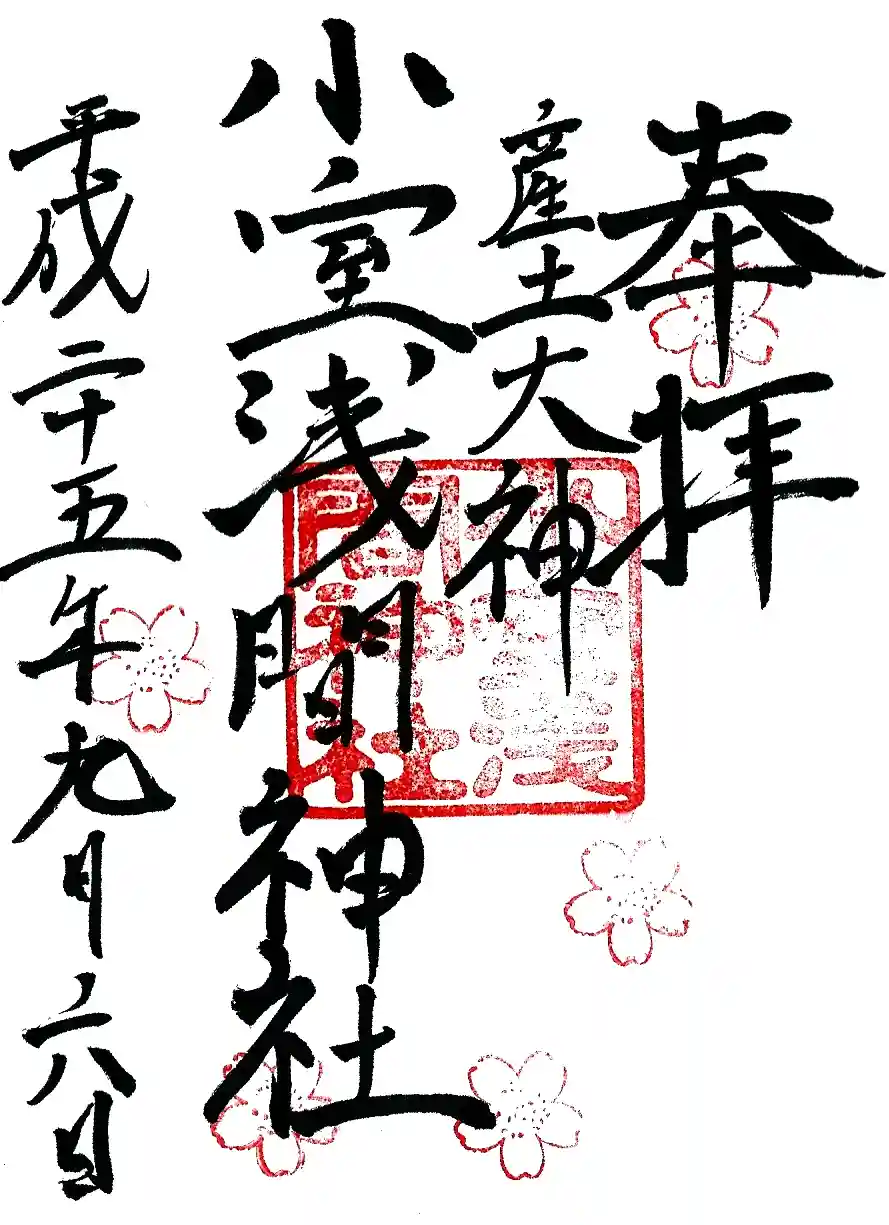 奉拝
産土大神
小室浅間神社
平成二十五年九月六日
小室浅
間神社